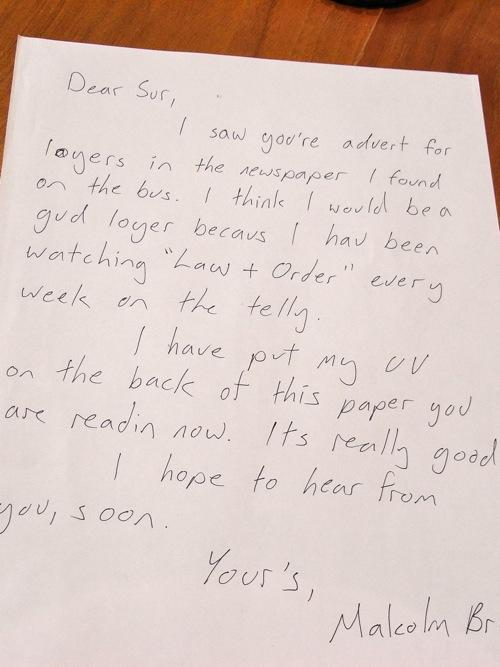 Dear Sur,
I saw you're advert for
loyers in the newspaper I found
on the bus. I think I would be a
gud loyer becaus I hav been
watching "Law + Order" every
week on the telly.
I have put my CV
on the back of this paper you
are readin now. Its really good
I hope to hear from
you, soon.
Your's,
Malcolm Br